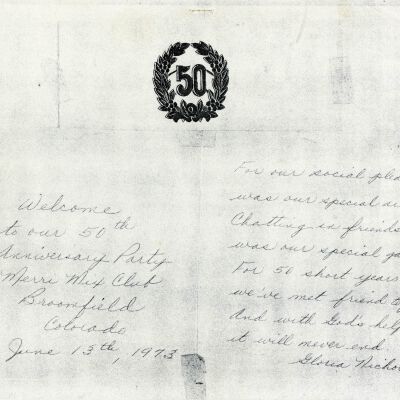 50
Welcome
to our 50th
Anniversary Party
Merri Mix Club
Broomfield
Colorado
June 15th, 1973
For our social
was our special
Chatting in
was our special
For 50 short years
we've met friend
And with God's
it will never end.
Gloria